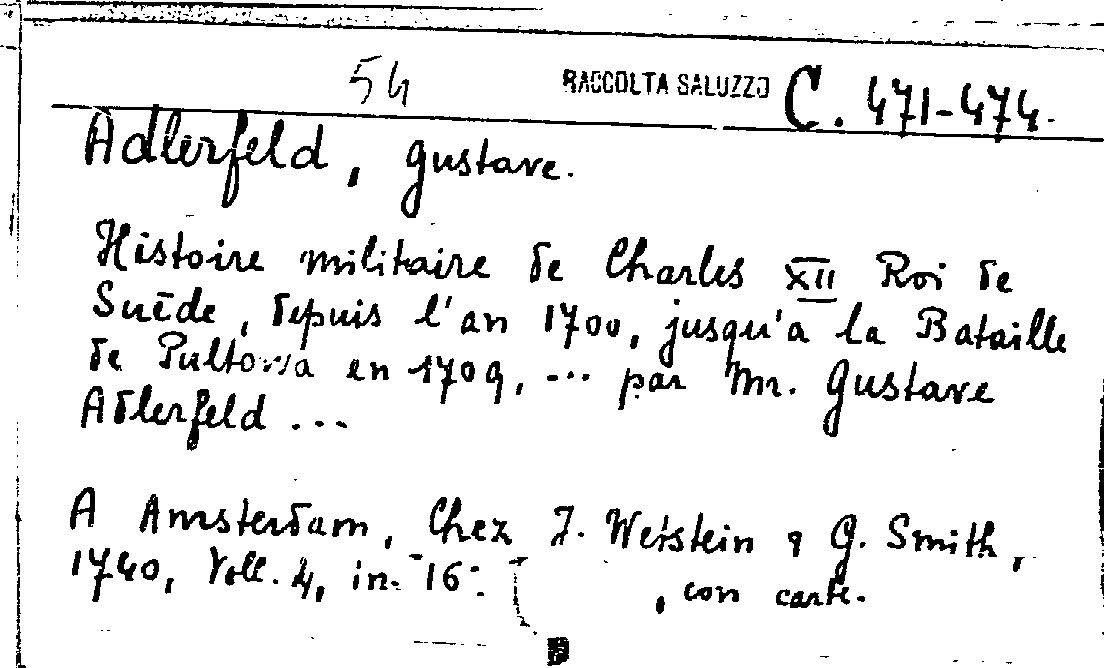 54 RACCOLTA SALUZZO C. 471-474.
Adlerfeld, Gustave.
Histoire militaire de Charles XII Roi de
Suède, depuis l'an 1700, jusqu'a la Bataille
de Pultowa en 1709, ... par Mr. Gustave
Adlerfeld ...
A Amsterdam, Chez J. Wetstein & G. Smith,
1740, Voll. 4, in-16º. , con carte.